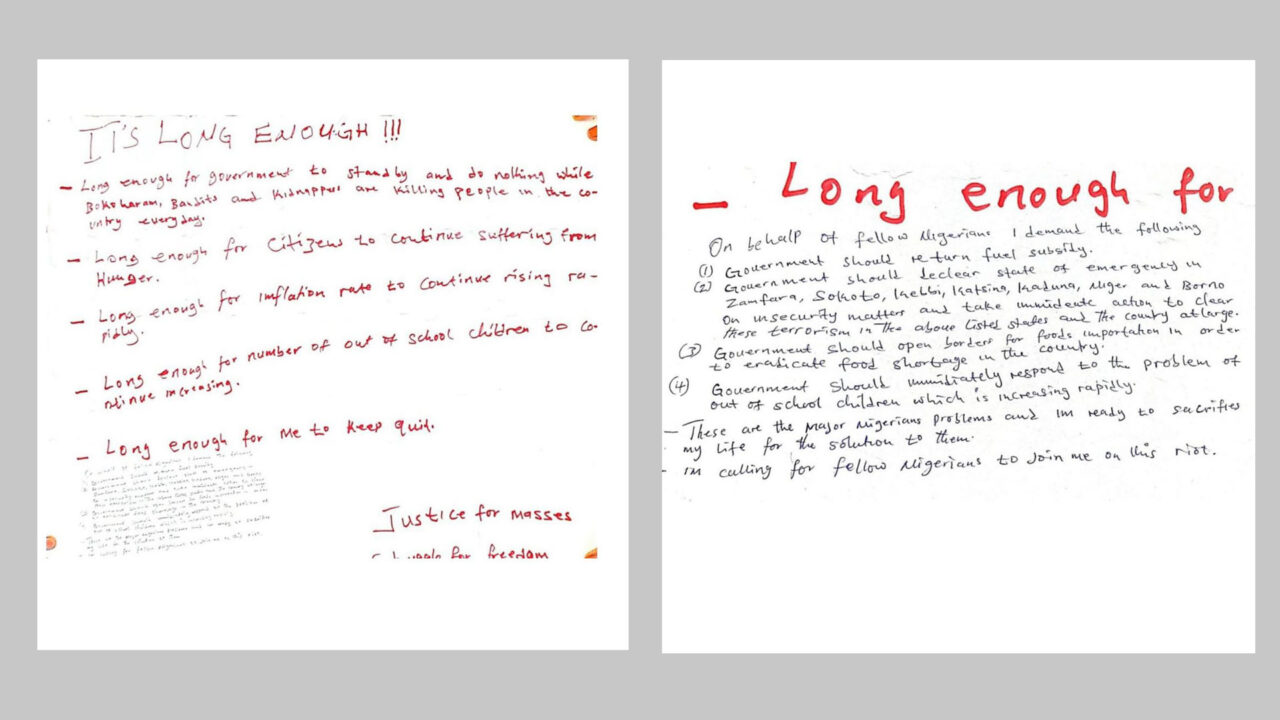 IT'S LONG ENOUGH !!!
– Long enough for government to standby and do nothing while
Bokoharam, Bandits and Kidnappers are killing people in the co-
untry everyday.
– Long enough for Citizens to continue suffering from
Hunger.
– Long enough for inflation rate to continue rising ra-
pidly.
– Long enough for number of out of school children to co-
ntinue increasing.
– Long enough for me to keep quit.
Justice for masses
for freedom
– Long enough for
On behalf of fellow Nigerians I demand the following
(1) Government should return fuel subsidy.
(2) Government should declear state of emergency in
Zamfara, Sokoto, Kebbi, Katsina, Kaduna, Niger and Borno
On insecurity matters and take immidente action to clear
these terrorism in the above listed states and the country atlarge.
(3) Government should open borders for foods importation in order
to eradicate food shortage in the country.
(4) Government should immidiately respond to the problem of
out of school children which is increasing rapidly.
– These are the major Nigerians problems and Im ready to sacrifies
my life for the solution to them.
- im calling for fellow Nigerians to Join me on this riot.